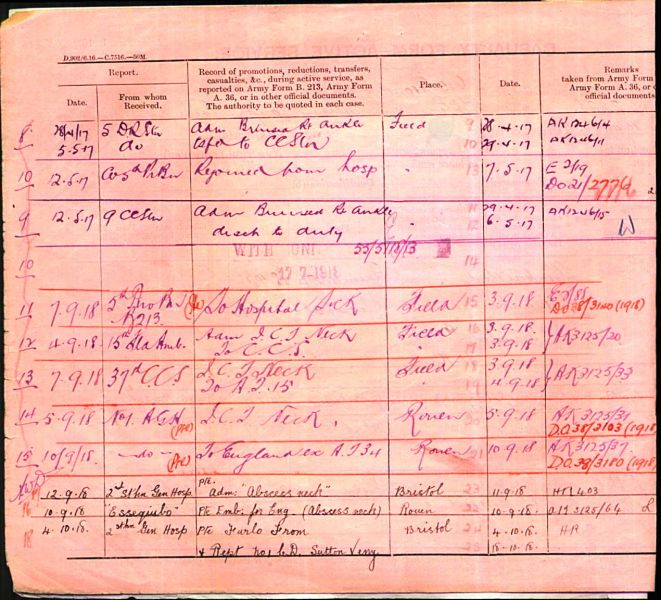 D.901/6.16.—C.7516.—50M.
Report. Record of promotions, reductions, transfers, casualties, &c., during active service, as reported on Army Form B. 213, Army Form A. 36, or in other official documents. The authority to be quoted in each case. Place. Date. Remarks taken from Army Form A. 36, or other official documents
Date. From whom Received.
8 28/4/17 5 DRStn Adm Bruised Rt Ankle Field 9 28-4-17 AR1246/4
5.5.17 do tsfd to CCStn 10 29-4-17 AR1246/11
10 12.5.17 Co 5th Pr Bn Rejoined from hosp " 13 7-5-17 E 2/19
DO21/
9 12.5.17 9 CCStn Adm Bruised Rt Ankle 11 29-4-17 AR1246/15
disch to duty 12 6-5-17
10 WITH UNI 55/5/18/13 14
11 7.9.18 5th Pro Bn To Hospital Sick Field 15 3.9.18
B213. DO 38/3140 (1918)
12 4.9.18 15th Fld Amb. Adm I.C.T. Neck Field 16 3.9.18. } AR3125/20
To C.C.S. 17 3.9.18
13 7.9.18 37th CCS I.C.T. Neck Field 18 3.9.18 } AR3125/33
To A.T.15 19 4-9-18
14 5.9.18 No1. A.G.H (Pte) I.C.T. Neck, Rouen 20 5.9.18 AR3125/31
D.O.38/3103 (1918)
15 10/9/18. —do— (Pte) To England ex A.T 34 Rouen 21 10.9.18 AR3125/39
D.O.38/3180 (1918)
Pte.
12.9.18 2nd Sthn Gen Hosp. Adm: "Abscess neck" Bristol 23 11.9.18 HR 403
16 10.9.18 "Essequibo" Pte Emb. for Eng. (Abscess neck) Rouen 22 10.9.18. AR 3125/64
18 4.10.18. 2nd Sthn Gen Hosp Pte Furlo From Bristol 24 4-10.18. HR
& Rept No1 C.D. Sutton Veny. 25 18-10-18.